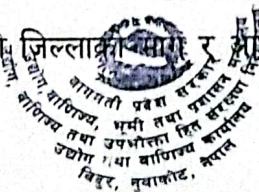 जिल्लाको माग र
बागमती प्रदेश सरकार
उद्योग, वाणिज्य, भूमि तथा प्रशासन
वाणिज्य तथा उपभोक्ता हित संरक्षण
उद्योग तथा वाणिज्य कार्यालय
विदुर, नुवाकोट, नेपाल